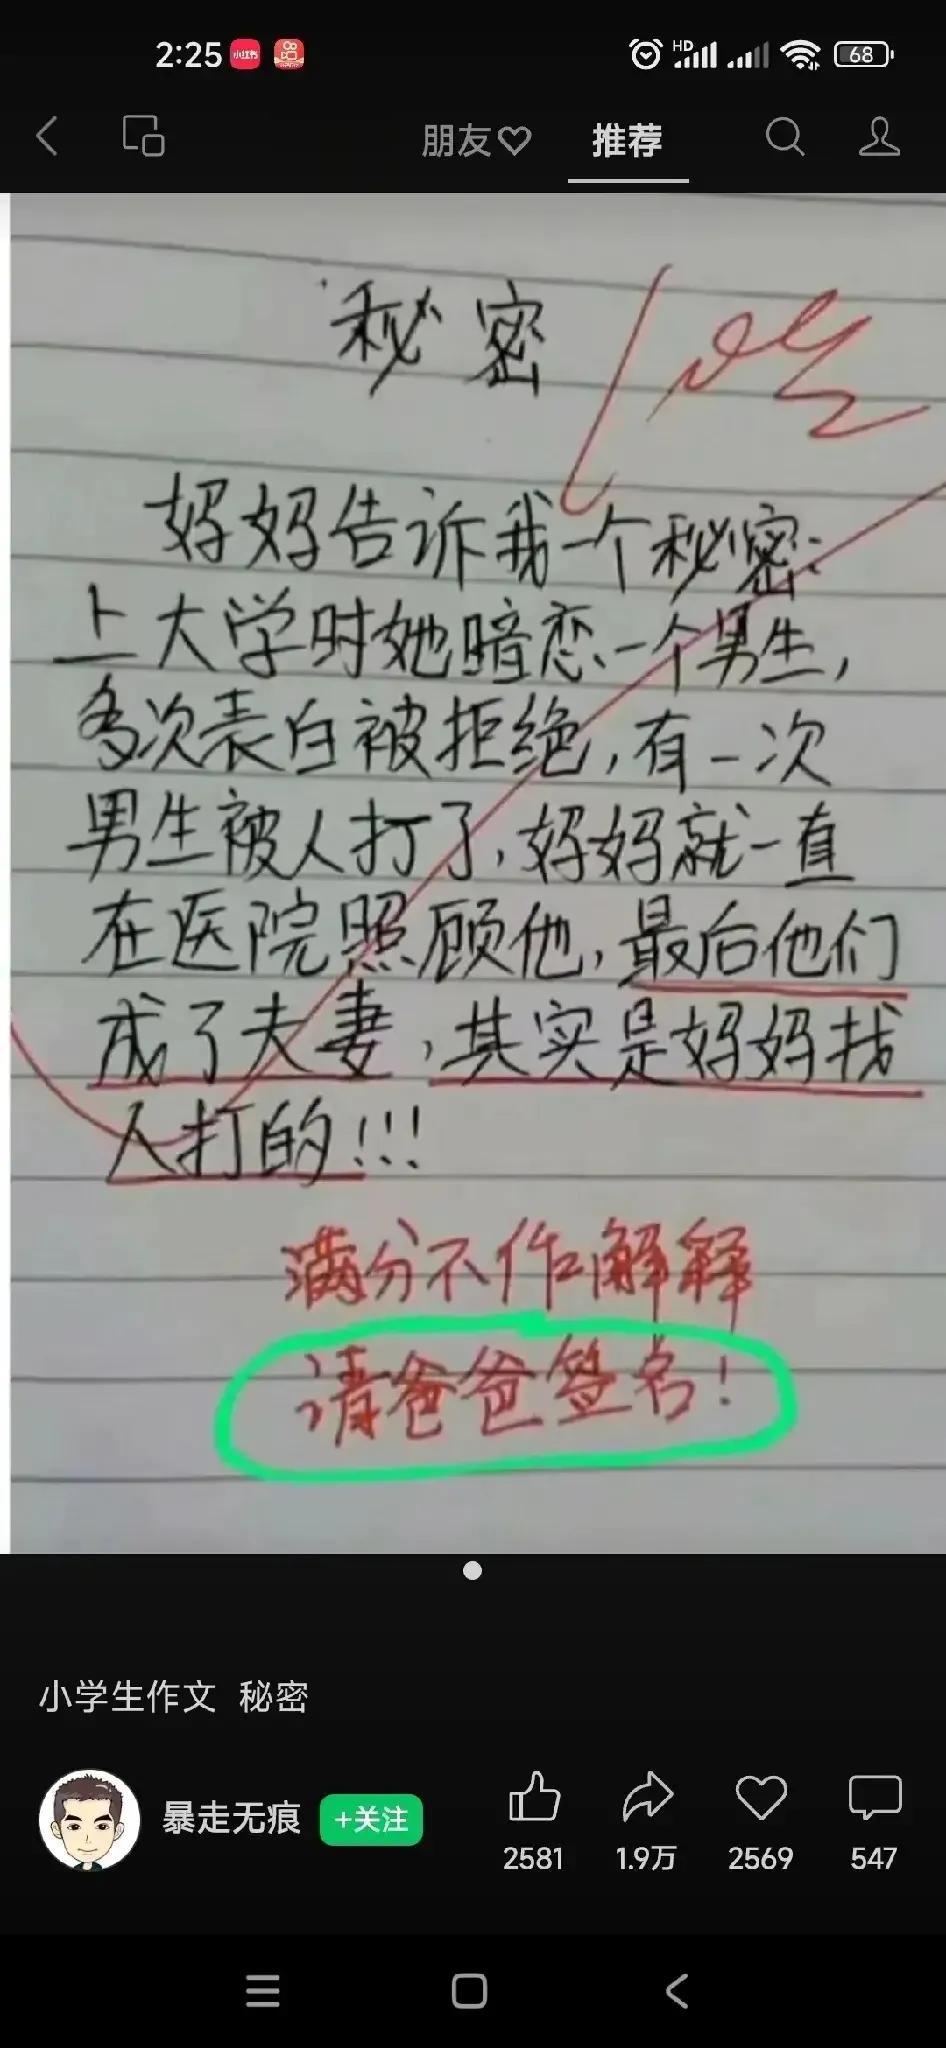 2:25
小红书
HD
68
朋友♡
推荐
秘密
妈妈告诉我一个秘密:
上大学时她暗恋一个男生,
多次表白被拒绝,有一次
男生被人打了,妈妈就一直
在医院照顾他,最后他们
成了夫妻,其实是妈妈找
人打的!!!
满分不作解释
请爸爸签名!
小学生作文 秘密
暴走无痕
+关注
2581
1.9万
2569
547